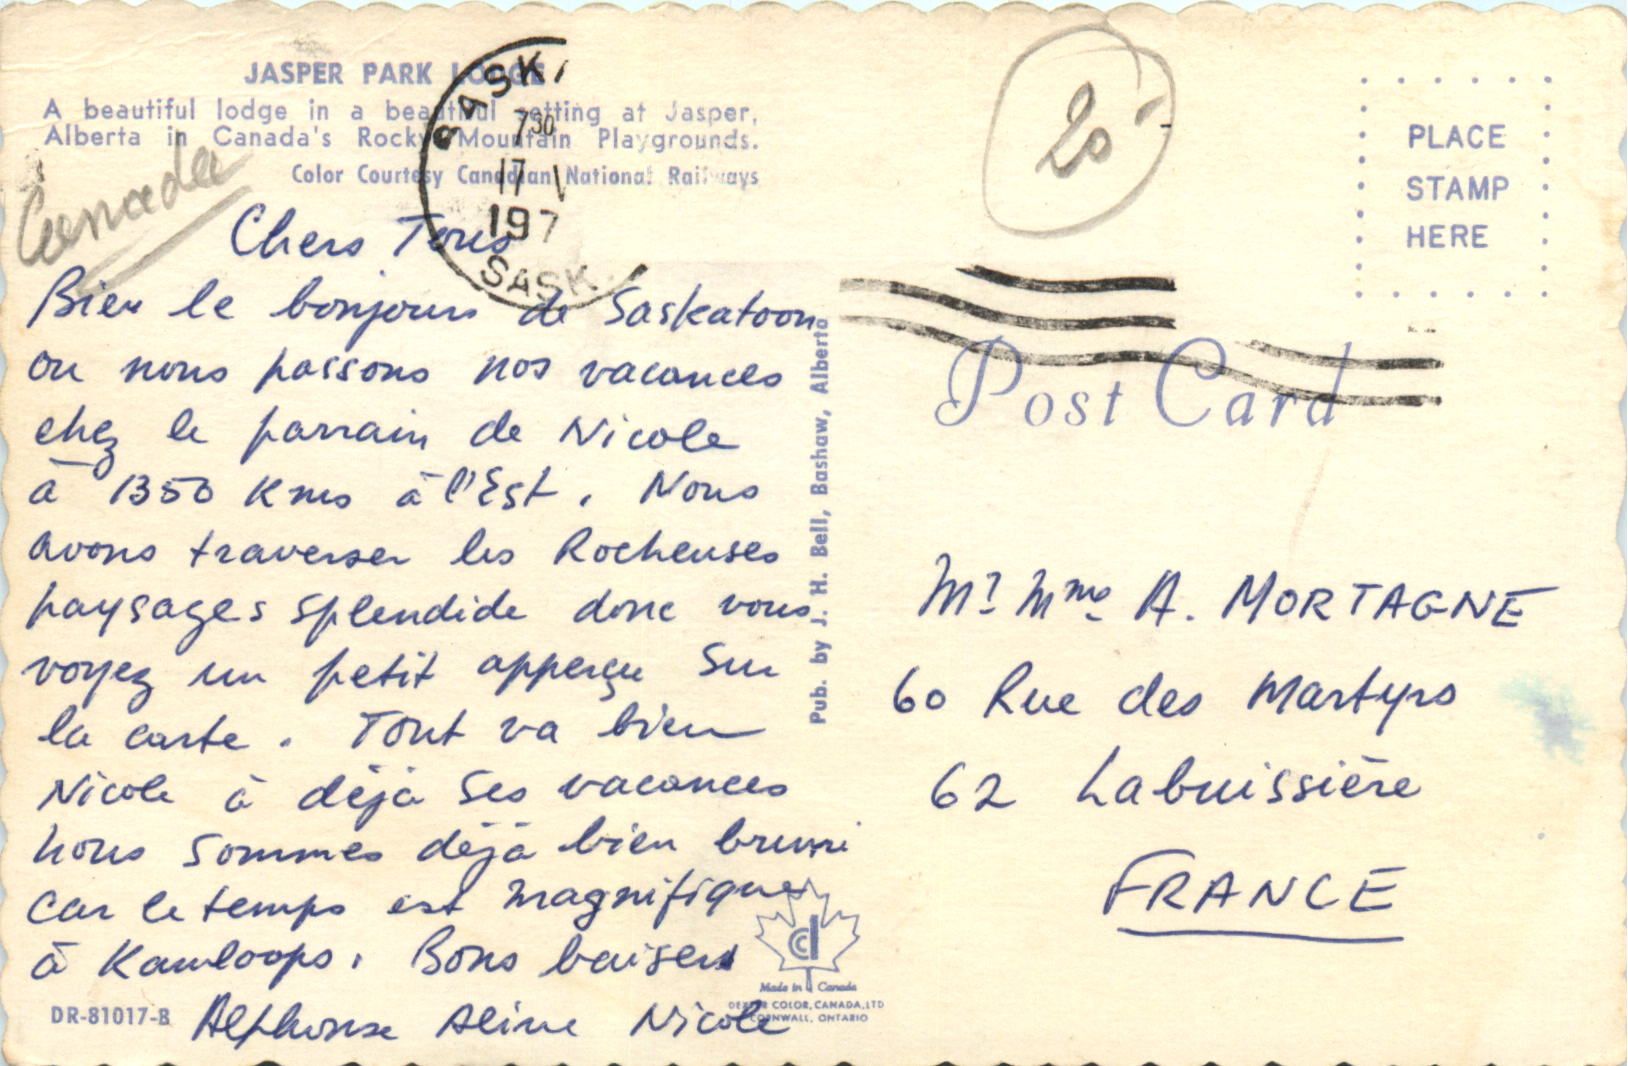 JASPER PARK LODGE
A beautiful lodge in a beautiful setting at Jasper,
Alberta in Canada's Rocky Mountain Playgrounds.
Color Courtesy Canadian National Railways
Canada
SASK
7 30
17 
197
SASK.
20
PLACE
STAMP
HERE
Post Card
Chers Tous
Bien le bonjours de Saskatoon
ou nous passons nos vacances
chez le parrain de Nicole
à 1350 Kms à l'Est. Nous
avons traverser les Rocheuses
paysages splendide donc vous
voyez un petit apperçu sur
la carte. Tout va bien
Nicole à déjà ses vacances
nous sommes déjà bien bruni
car le temps est magnifique
à Kamloops. Bons baisers
Alphonse Aline Nicole
Pub. by J. H. Bell, Bashaw, Alberta
Mr Mme A. MORTAGNE
60 Rue des Martyrs
62 Labuissière
FRANCE
Made in Canada
DEXTER COLOR, CANADA, LTD
CORNWALL, ONTARIO
DR-81017-B